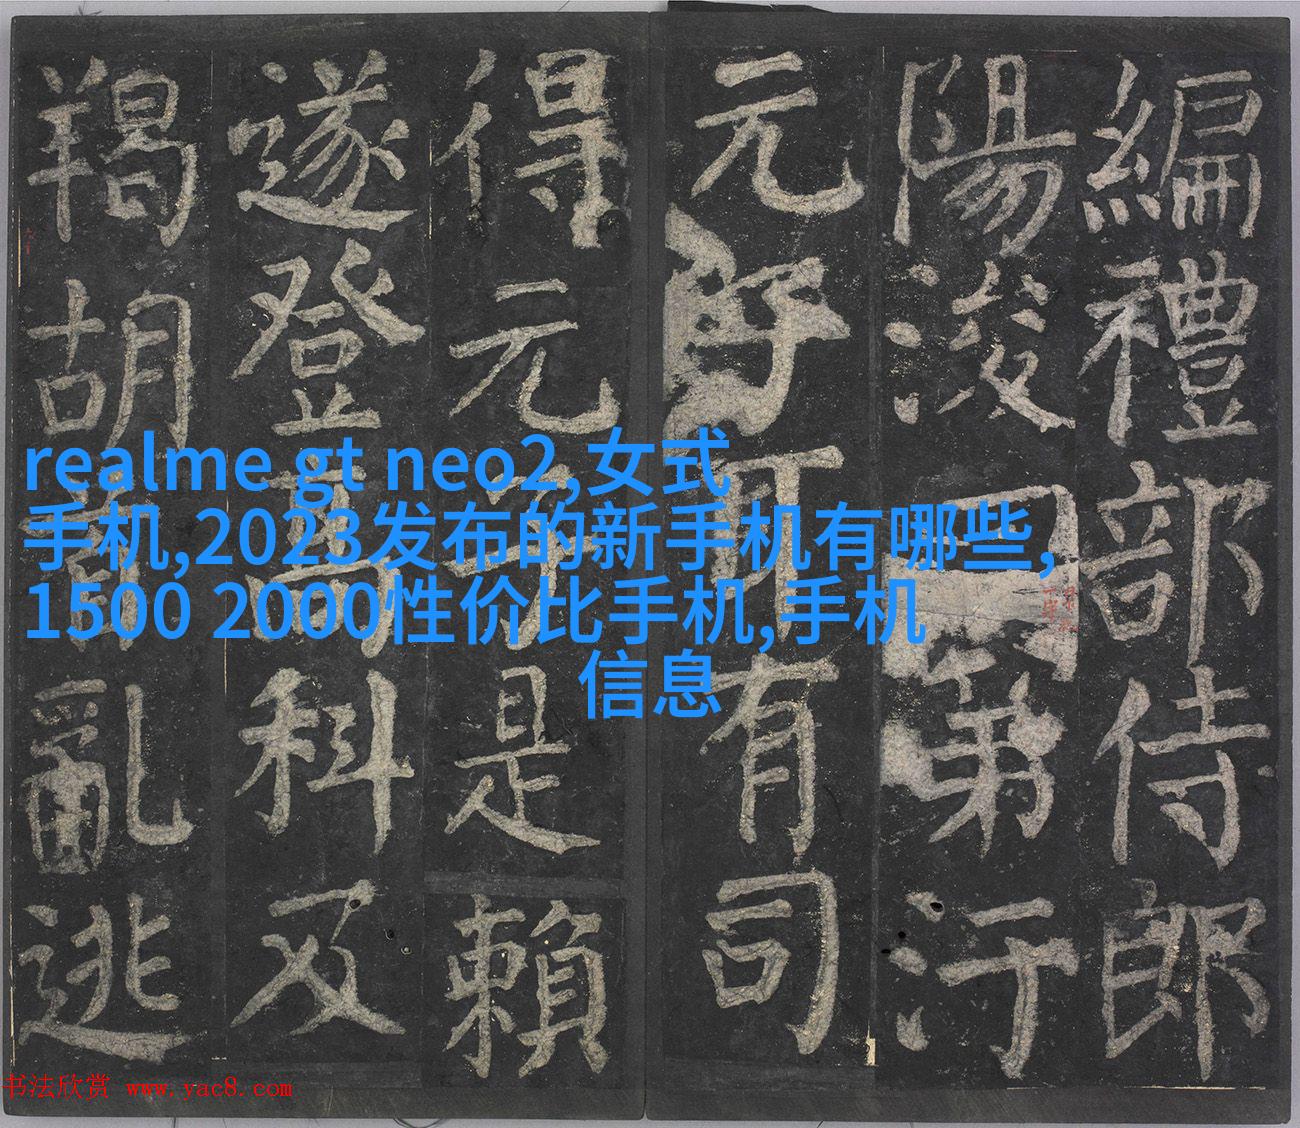 編禮部侍郎
陽浚曰一第汙
元子耳有司
得元子是賴
遂登高科及
羯胡首亂逃
realme gt neo2,女式
手机,2023发布的新手机有哪些,
1500 2000性价比手机,手机
信息
书法欣赏 www.yac8.com